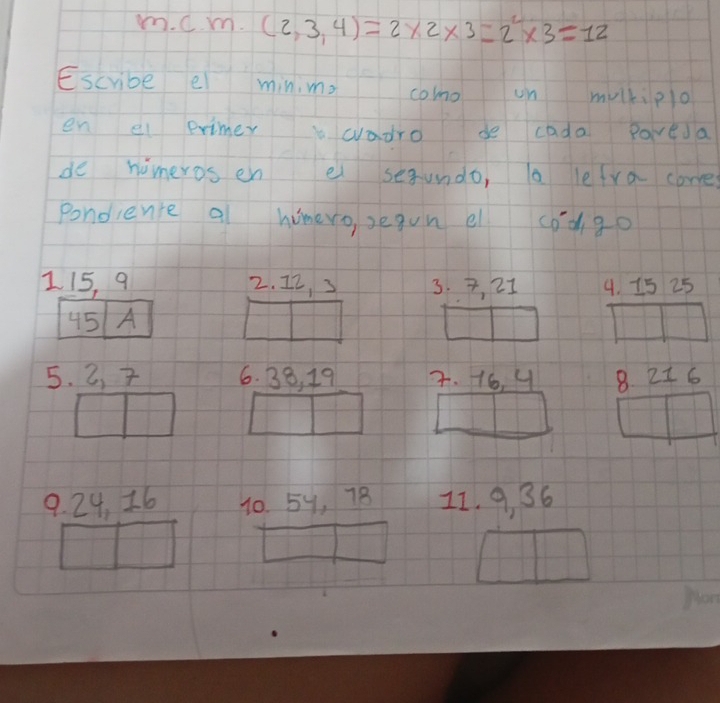 m.c.m. (2,3,4)=2×2×3=2²×3=12
Escribe el minimo como un multiplo
en el primer cuadro de cada pareja
de números en el segundo, la letra corres
pondiente al número, segun el código
1. 15, 9 2. 12, 3 3. 7, 21 4. 15 25
45 A
5. 2, 7 6. 38, 19 7. 76, 4 8. 21 6
9. 24, 16 10. 54, 78 11. 9, 36